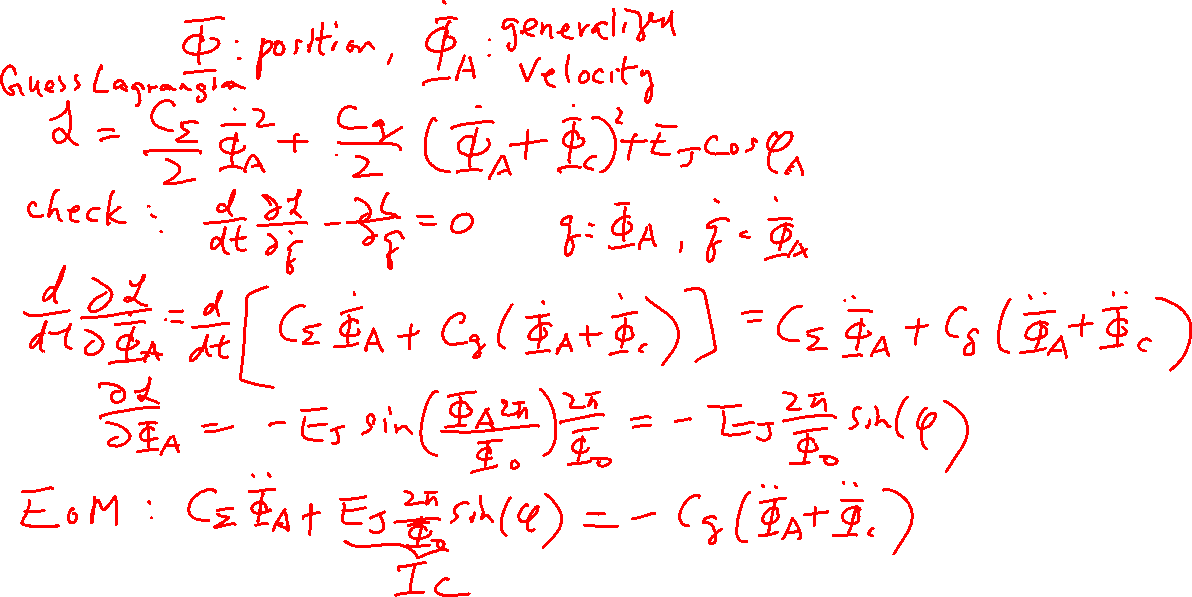 Φ: position, Φ̇_A: generalized velocity
Guess Lagrangian
ℒ = C_Σ/2 Φ̇_A² + C_g/2 (Φ̇_A + Φ̇_c)² + E_J cos φ_A
check: d/dt ∂ℒ/∂q̇ - ∂ℒ/∂q = 0 q = Φ_A, q̇ = Φ̇_A
d/dt ∂ℒ/∂Φ̇_A = d/dt [C_Σ Φ̇_A + C_g (Φ̇_A + Φ̇_c)] = C_Σ Φ̈_A + C_g (Φ̈_A + Φ̈_c)
∂ℒ/∂Φ_A = - E_J sin(Φ_A 2π/Φ_0) 2π/Φ_0 = - E_J 2π/Φ_0 sin(φ)
EoM: C_Σ Φ̈_A + E_J 2π/Φ_0 sin(φ) = - C_g (Φ̈_A + Φ̈_c)
I_C